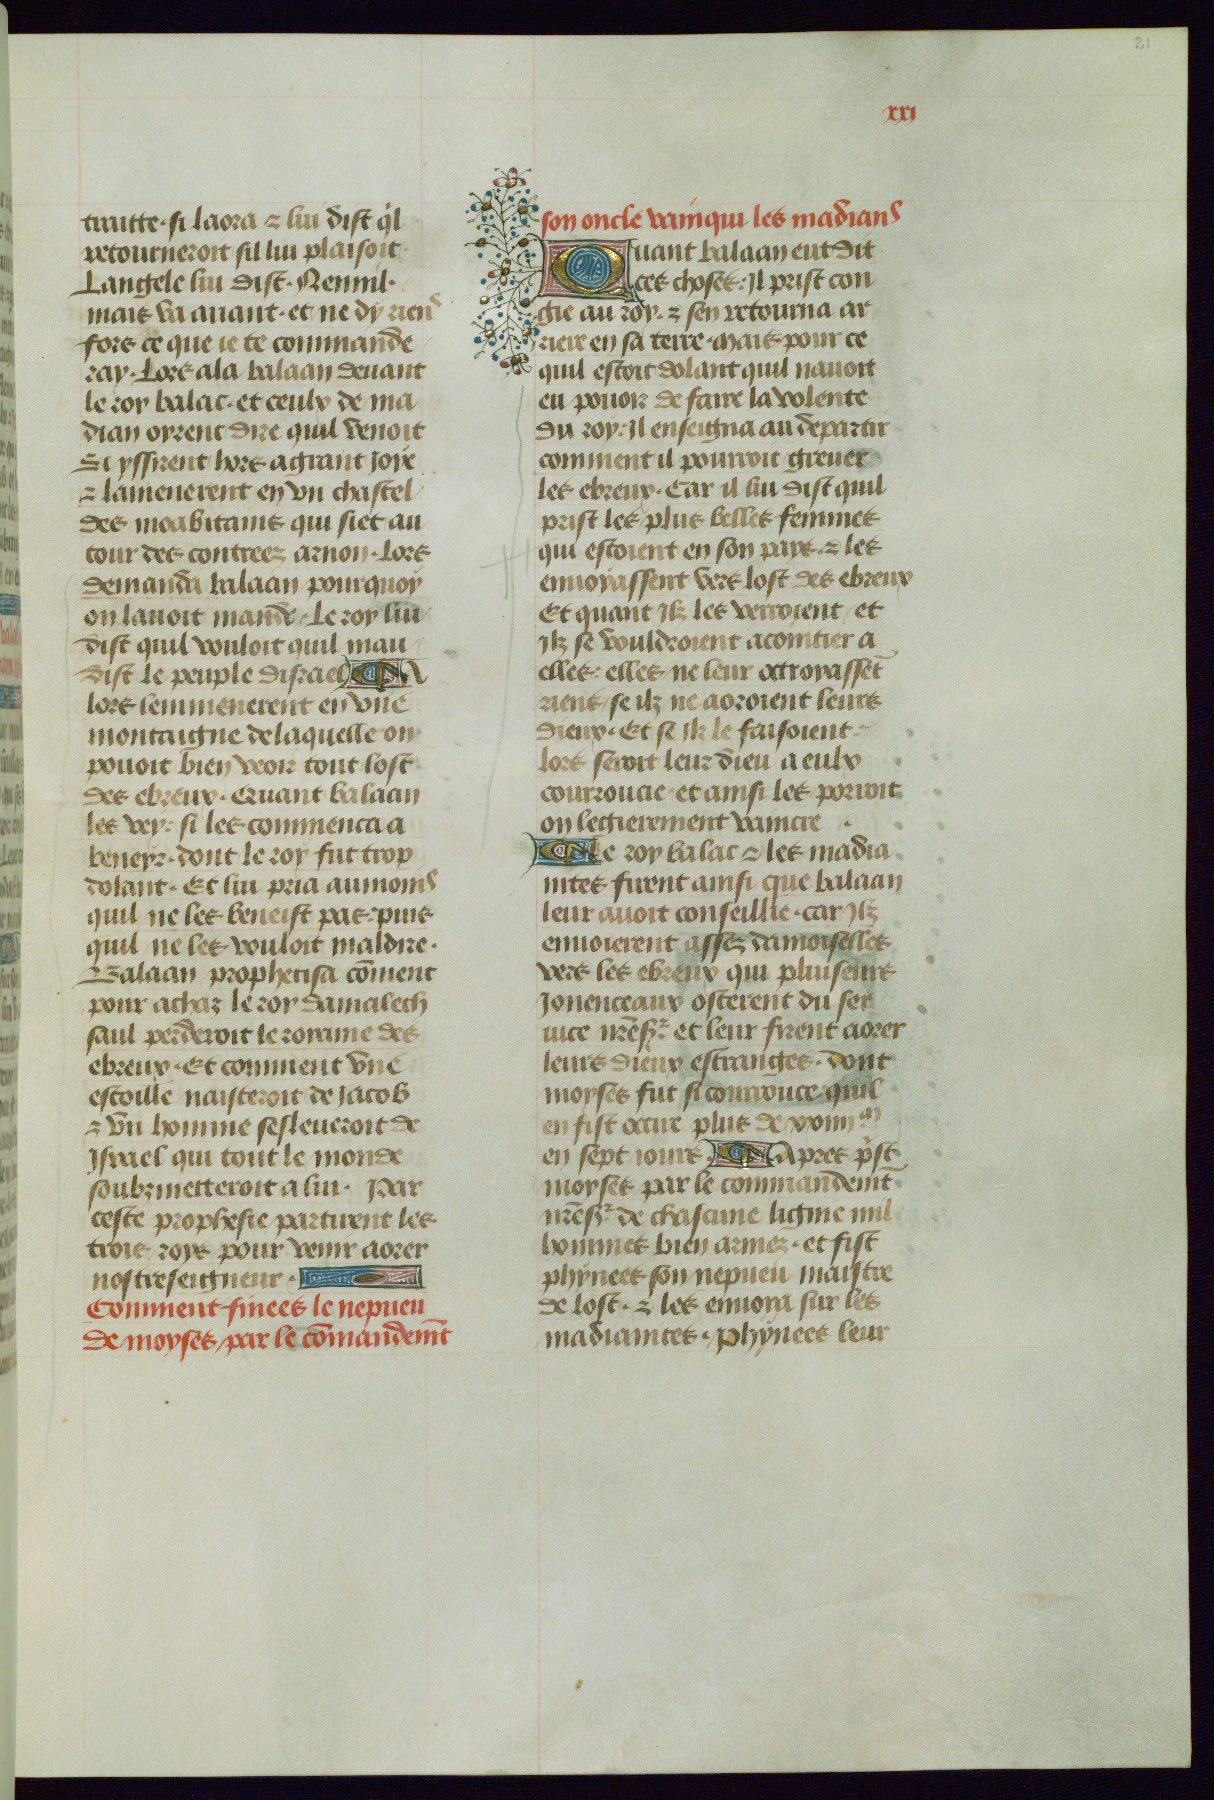 21
xxi
traitte. si laora ⁊ lui dist q̃l
retourneroit sil lui plaisoit.
Langele lui dist. Nennil.
mais va auant. et ne dy riens
fors ce que ie te commande
ray. Lors ala balaan deuant
le roy balac. et ceulx de ma
dian oyrent dire quil venoit
Si yssirent hors a grant joye
⁊ lamenerent en vn chastel
des moabitains qui siet au
tour des contreez arnon. Lors
demanda balaan pourquoy
on lauoit mande. Le roy lui
dist quil vouloit quil mau
dist le peuple disrael A
lors lemmenerent en vne
montaigne de laquelle on
pouoit bien veoir tout lost
des ebreux. Quant balaan
les vey: si les commenca a
beneyr. dont le roy fut trop
dolant. Et lui pria au moins
quil ne les beneist pas. puis
quil ne les vouloit maldire.
Balaan prophetisa cõment
pour achaz le roy damalech
saul perderoit le royaume des
ebreux. Et comment vne
estoille naisteroit de jacob
⁊ vn homme sesleueroit de
Israel qui tout le monde
soubzmetteroit a lui. Par
ceste prophesie partirent les
trois roys pour venir aorer
nostreseigneur.
Comment finees le nepueu
de moyses par le cõmandem̃t
son oncle vainqui les madians
Quant balaan eut dit
ces choses: Il prist con
gie au roy. ⁊ sen retourna ar
riere en sa terre. mais pour ce
quil estoit dolant quil nauoit
eu pouoir de faire la volente
du roy: Il enseigna au departir
comment il pourroit greuer
les ebreux. Car il lui dist quil
prist les plus belles femmes
qui estoient en son pays. ⁊ les
enuoyassent vers lost des ebreux
Et quant Ilz les verroient / et
Ilz se vouldroient acointier a
elles: elles ne leur octroyassẽt
riens / se ilz ne aoroient leurs
dieux. Et se ilz le faisoient
lors seroit leur dieu a eulx
courroucie et ainsi les porroit
on legierement vaincre.
Le roy balac ⁊ les madia
nites firent ainsi que balaan
leur auoit conseillie. car Ilz
enuoierent assez damoiselles
vers les ebreux qui pluiseurs
Jouenceaux osterent du ser
uice nr̃es̃r. et leur firent aorer
leurs dieux estranges. dont
moyses fut si courrouce quil
en fist occire plus de xxiiii m
en sept iours. Apres p̃st
moyses par le commandem̃t
nr̃es̃r. de chascune lignie mil
hommes bien armez. et fist
phynees son nepueu maistre
de lost. ⁊ les enuoya sur les
madianites. Phynees leur